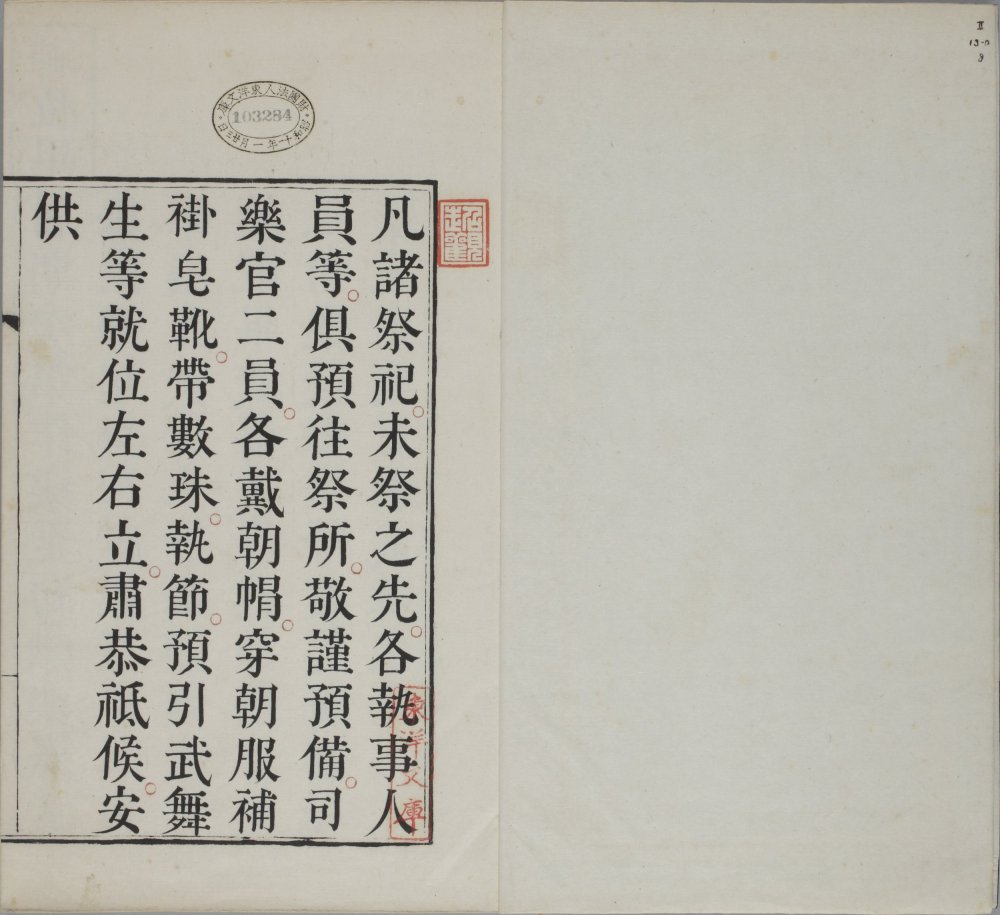 Ⅱ
13-0
9
財團法人東洋文庫
103284
昭和十一年一月廿三日
凡諸祭祀。未祭之先。各執事人
員等。俱預往祭所。敬謹預備。司
樂官二員。各戴朝帽。穿朝服補
褂皂靴。帶數珠。執節。預引武舞
生等就位左右立。肅恭祗候。安
供
東洋文庫